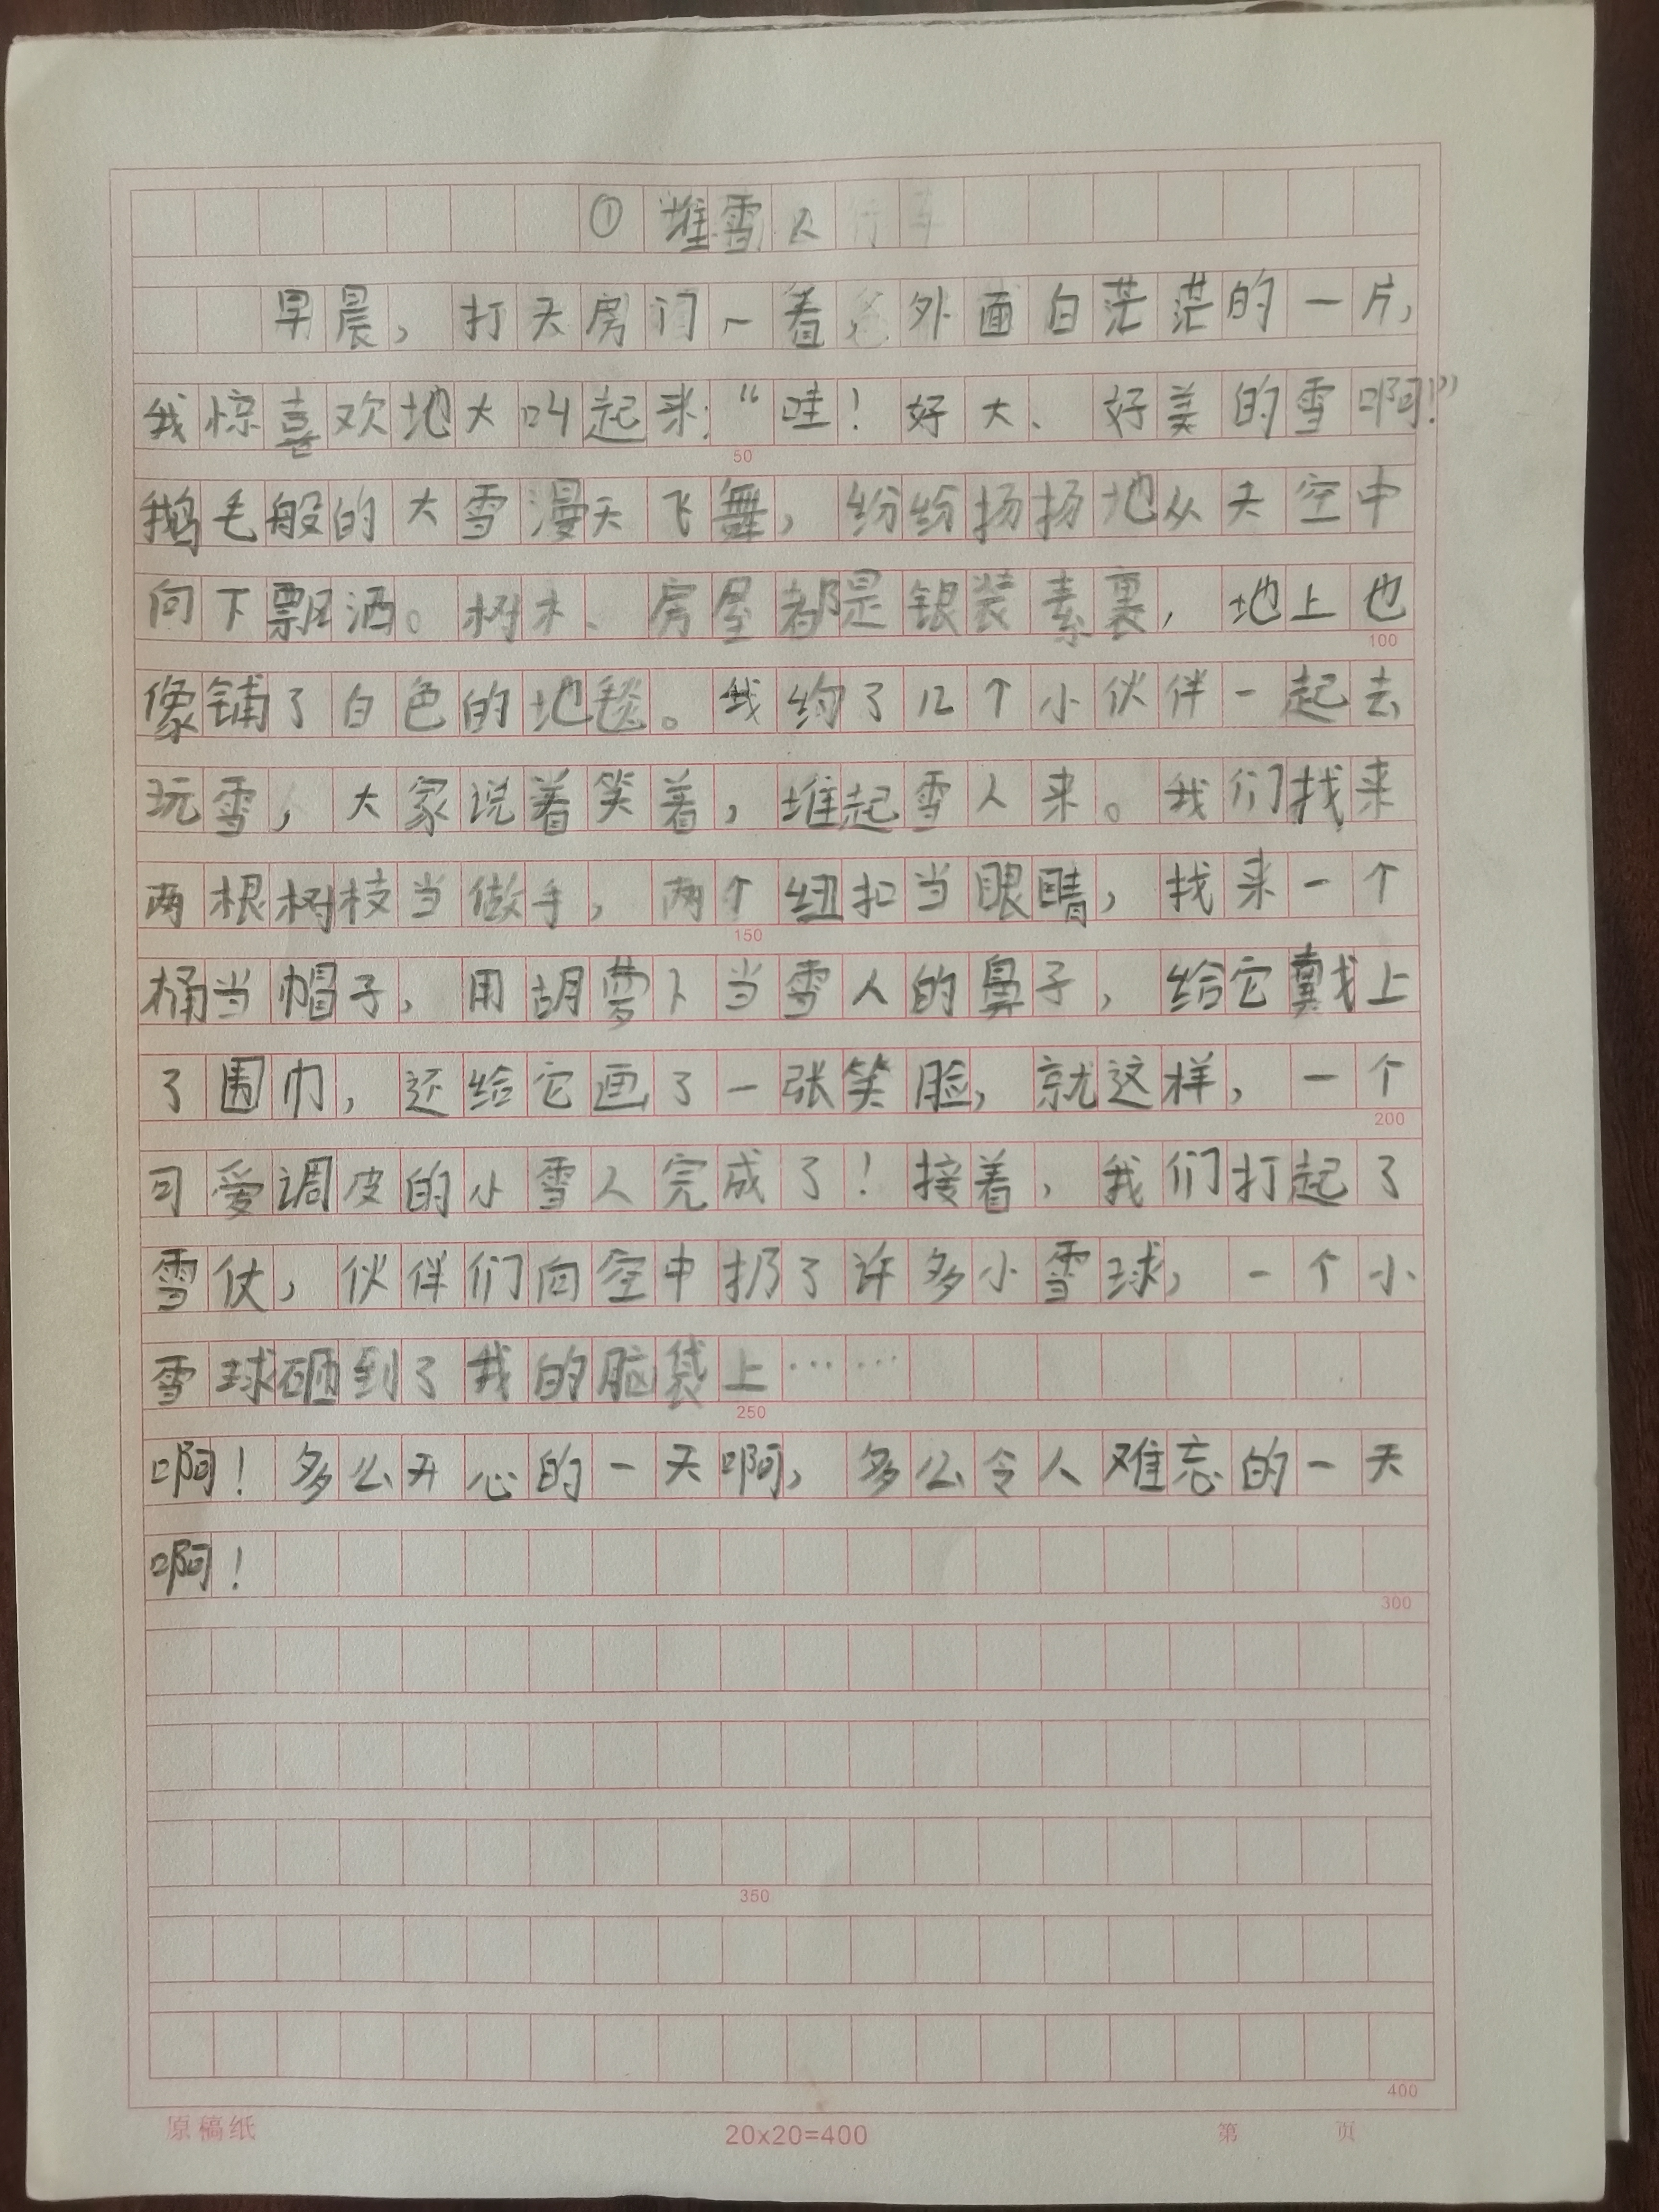 ① 堆雪人
早晨，打天房门一看，外面白茫茫的一片，
我惊喜欢地大叫起来：“哇！好大、好美的雪啊！”
50
鹅毛般的大雪漫天飞舞，纷纷扬扬地从天空中
向下飘洒。树木、房屋都是银装素裹，地上也
100
像铺了白色的地毯。我约了几个小伙伴一起去
玩雪，大家说着笑着，堆起雪人来。我们找来
两根树枝当做手，两个纽扣当眼睛，找来一个
150
桶当帽子，用胡萝卜当雪人的鼻子，给它戴上
了围巾，还给它画了一张笑脸，就这样，一个
200
可爱调皮的小雪人完成了！接着，我们打起了
雪仗，伙伴们向空中扔了许多小雪球，一个小
雪球砸到了我的脑袋上……
250
啊！多么开心的一天啊，多么令人难忘的一天
啊！
300
350
400
原稿纸 20x20=400 第 页